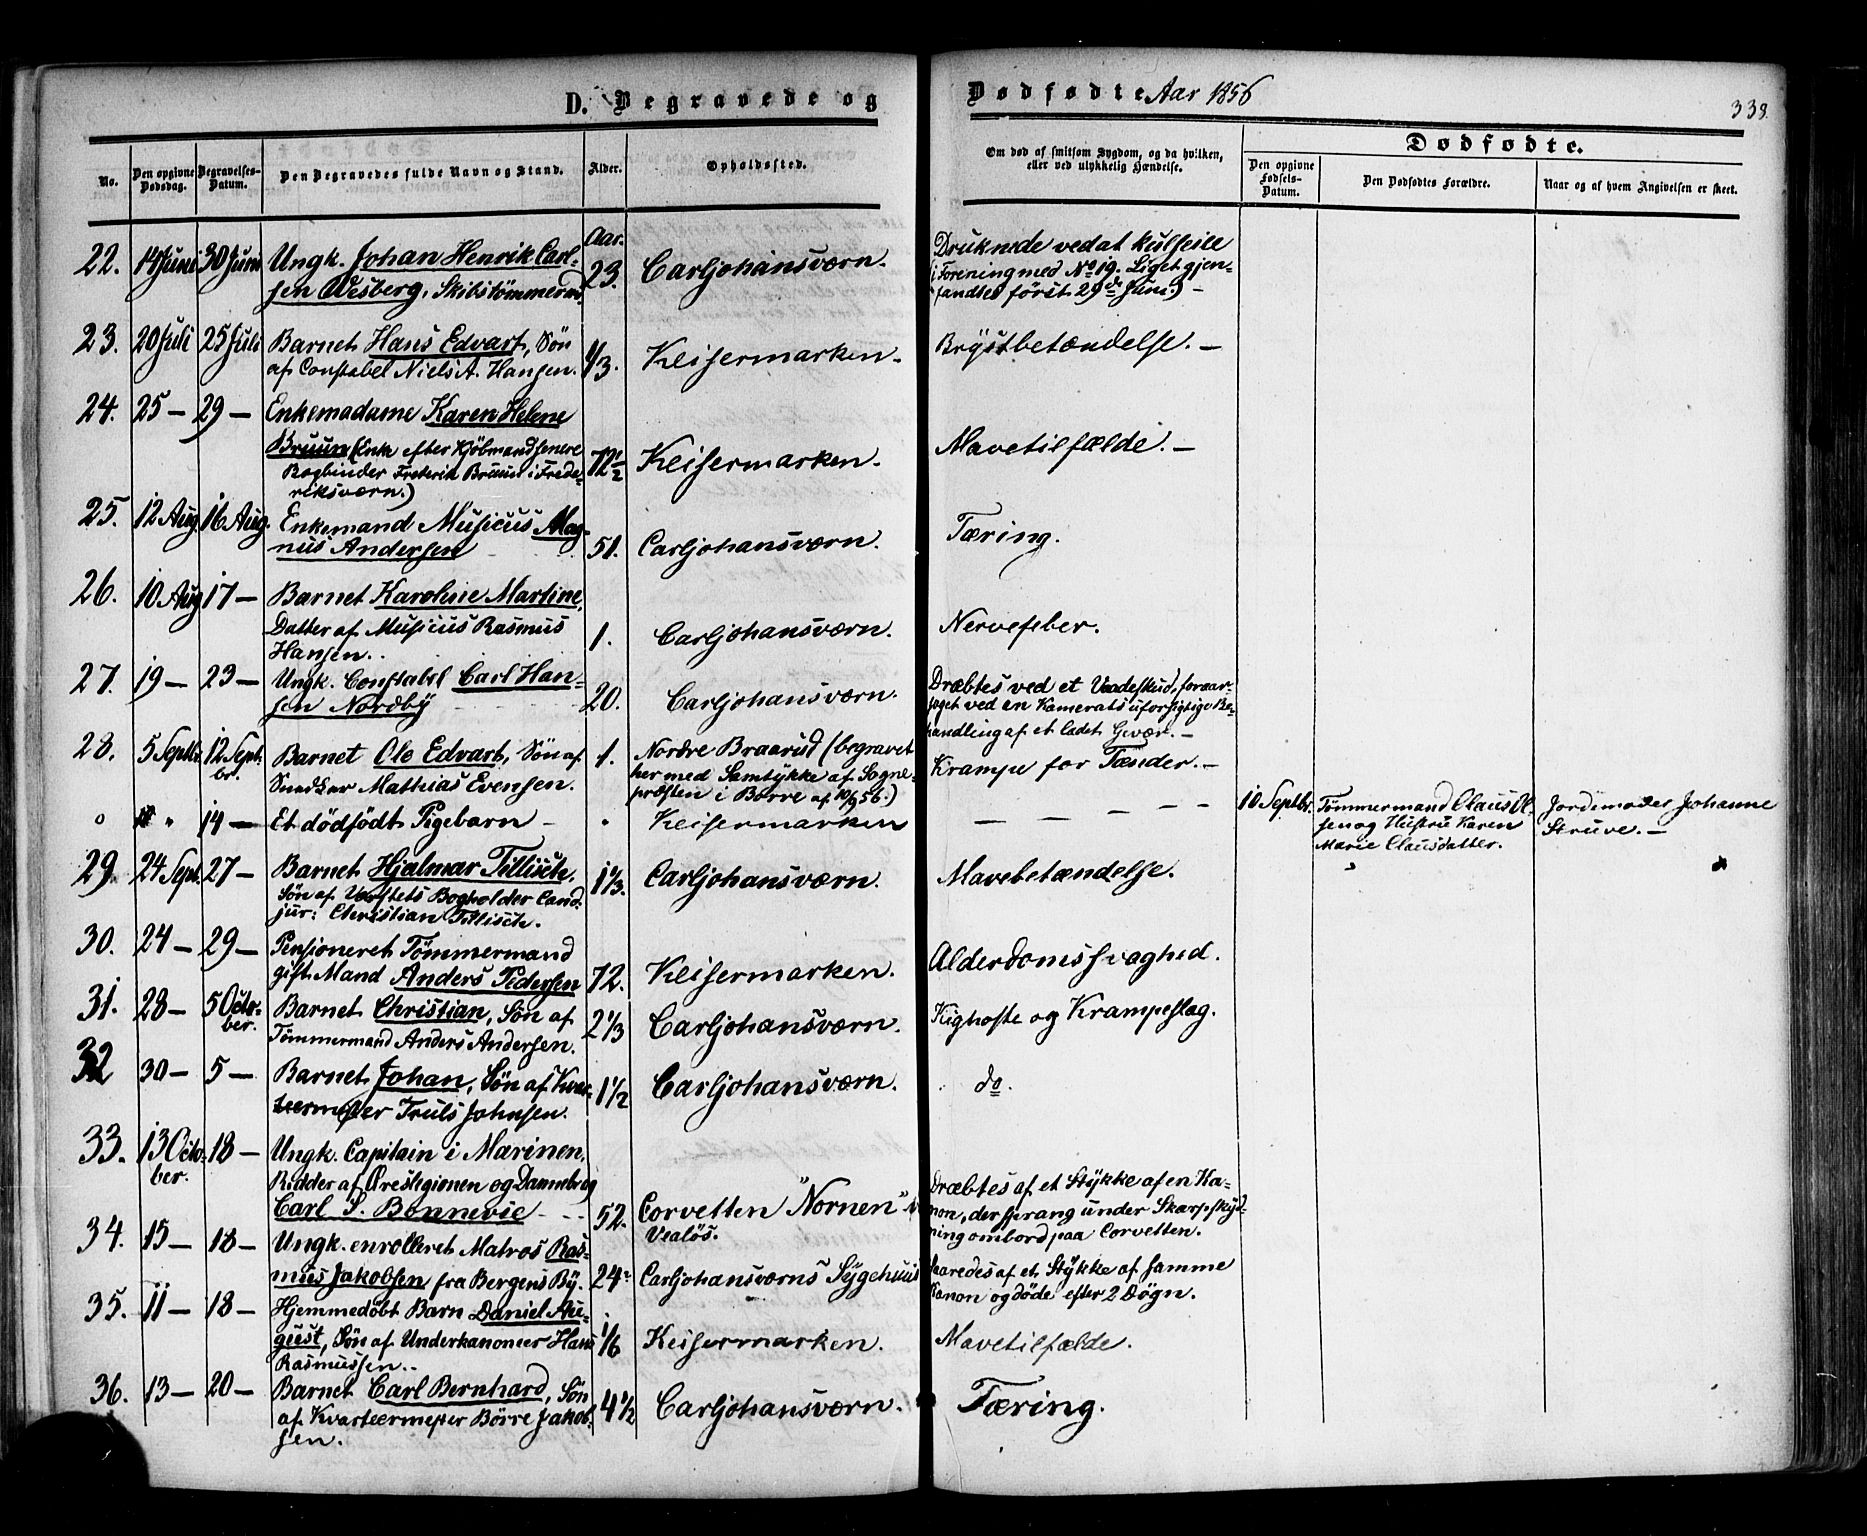 D. Begravede og
Dødfødte Aar 1856
339.
No.
Den opgivne Dødsdag.
Begravelses-Datum.
Den Begravedes fulde Navn og Stand.
Alder.
Opholdssted.
Om død af smitsom Sygdom, og da hvilken, eller ved ulykkelig Hændelse.
Dødfødte.
Den opgivne Fødsels-Datum.
Den Dødfødtes Forældre.
Naar og af hvem Angivelsen er skeet.
Aar.
22. 14 Juni 30 Juni Ungk. Johan Henrik Carl-
sen Wesberg, Skibstømmermd. 23. Carljohansværn.
Druknede ved at kulseile
(i Forening med No 19. Liget gjen-
fandtes først 29de Juni.) -
23. 20 Juli 25 Juli Barnet Hans Edvart, Søn
af Constabel Niels A. Hansen. 1/3. Keisermarken. Brystbetændelse. -
24. 25 - 29 - Enkemadame Karen Helene
Bruun (Enke efter Kjöbmand senere
Bogbinder Frederik Bruun i Frede-
riksværn.) 72 1/2 Keisermarken. Mavetilfælde. -
25. 12 Aug. 16 Aug. Enkemand Musicus Mag-
nus Andersen 51. Carljohansværn. Tæring.
26. 10 Aug 17 - Barnet Karoline Martine,
Datter af Musicus Rasmus
Hansen. 1. Carljohansværn. Nervefeber.
27. 19 - 23 - Ungk. Constabel Carl Han-
sen Nordby 20. Carljohansværn.
Dræbtes ved et Vaadeskud, foraar-
saget ved en Kamerats uforsigtige Be-
handling af et ladet Gevær. -
28. 5 Septbr. 12 Septbr. Barnet Ole Edvart, Søn af
Mathias Evensen. 1. Nordre Braarud (begravet
her med Samtykke af Sogne-
præsten i Borre af 10/9 56.) Krampe for Tænder. -
14 - Et dödfödt Pigebarn - Keisermarken - - - - -
10 Septbr. Tömmermand Claus Ol-
sen og Hustru Karen
Marie Clausdatter.
Jordemoder Johanne
Struve. -
29. 24 Sept. 27 - Barnet Hjalmar Tillisch,
Søn af Værftets Bogholder Cand.
jur: Christian Tillisch. 1 1/3. Carljohansværn. Mavebetændelse.
30. 24 - 29 - Pensioneret Tömmermand
gift Mand Anders Pedersen 72. Keisermarken. Alderdomssvaghed.
31. 28 - 5 October. Barnet Christian, Søn af
Tømmermand Anders Andersen. 2 1/3 Carljohansværn. Kighoste og Krampeslag.
32 30 - 5 - Barnet Johan, Søn af Kvar-
teermester Truls Johnsen. 1 1/2 Carljohansværn. do.
33. 13 October. 18 - Ungk. Capitain i Marinen,
Ridder af Æreslegionen og Dannebrog
Carl S. Bonnevie - 52. Corvetten "Nornen"
Vealös.
Dræbtes af et Stykke af en Ka-
non, der sprang under Skarpskyd-
ning ombord paa Corvetten.
34. 15 - 18 - Ungk. enrolleret Matros Ras-
mus Jakobsen fra Bergens By. 24 Carljohansværns Sygehuus
Saaredes af et Stykke af samme
Kanon og døde efter 2 Døgn.
35. 11 - 18 - Hjemmedøbt Barn Daniel Au-
gust, Søn af Underkanoneer Hans
Rasmussen. 1/6 Keisermarken. Mavetilfælde.
36. 13 - 20 - Barnet Carl Bernhard, Søn
af Kvarteermester Börre Jakob-
sen. 4 1/2 Carljohansværn. Tæring.